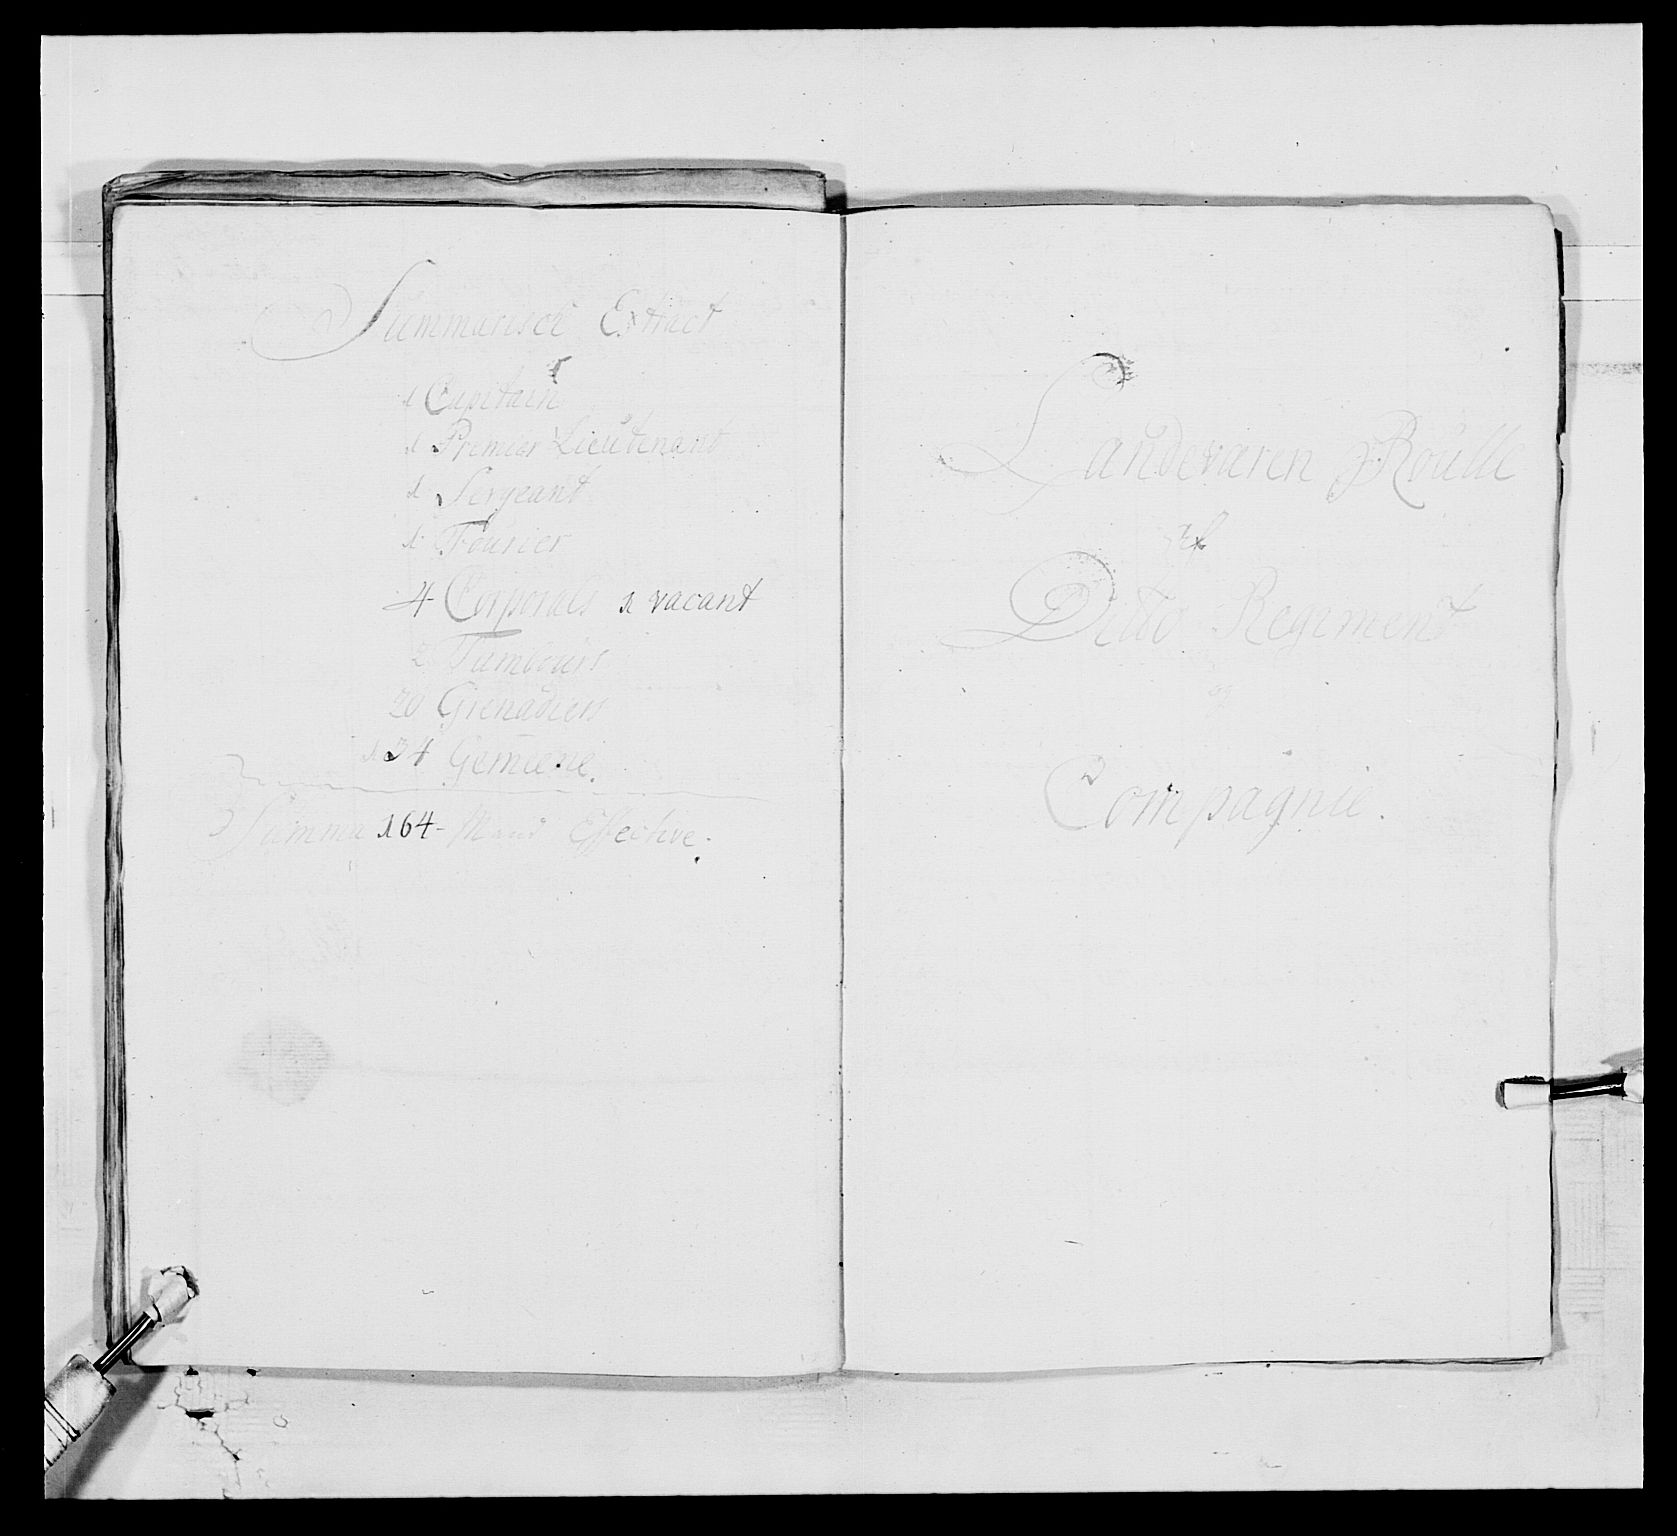 Summarisch Extract
1 Capitain
1 Premier Lieutenant
1 Sergeant
1 Fourier
4 Corporals 1 vacant
2 Tambours
20 Grenadiers
134 Gemeene.
Summa 164 - Mand Effective.
Landeværen Roulle
af
Ditto Regiment
og
Compagnie.